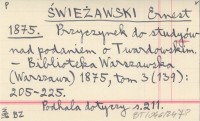 P P
ŚWIEŻAWSKI Ernest
1875. Przyczynek do studyów
nad podaniem o Twardowskim.
– Biblioteka Warszawska
(Warszawa) 1875, tom 3 (139):
205-225.
Podhala dotyczy s. 211.
BZ